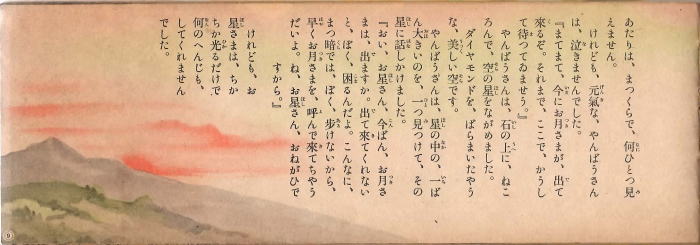 あたりは、まつくらで、何ひとつ見
えません。
けれども、元氣な、やんばうさん
は、泣きませんでした。
『まてまて、今にお月さまが、出て
來るぞ。それまで、ここで、かうし
て待つてゐませう。』
やんばうさんは、石の上に、ねこ
ろんで、空の星をながめました。
ダイヤモンドを、ばらまいたやう
な、美しい空です。
やんばうさんは、星の中の、一ば
ん大きいのを、一つ見つけて、その
星に話しかけました。
『おい、お星さん、今ばん、お月さ
まは、出ますか。出て來てくれない
と、ぼく、困るんだよ。こんなに、
まつ暗では、ぼく、歩けないから、
早くお月さまを、呼んで來てちやう
だいよ。ね、お星さん、おねがひで
すから。』
けれども、お
星さまは、ちか
ちか光るだけで
何のへんじも、
してくれません
でした。
9